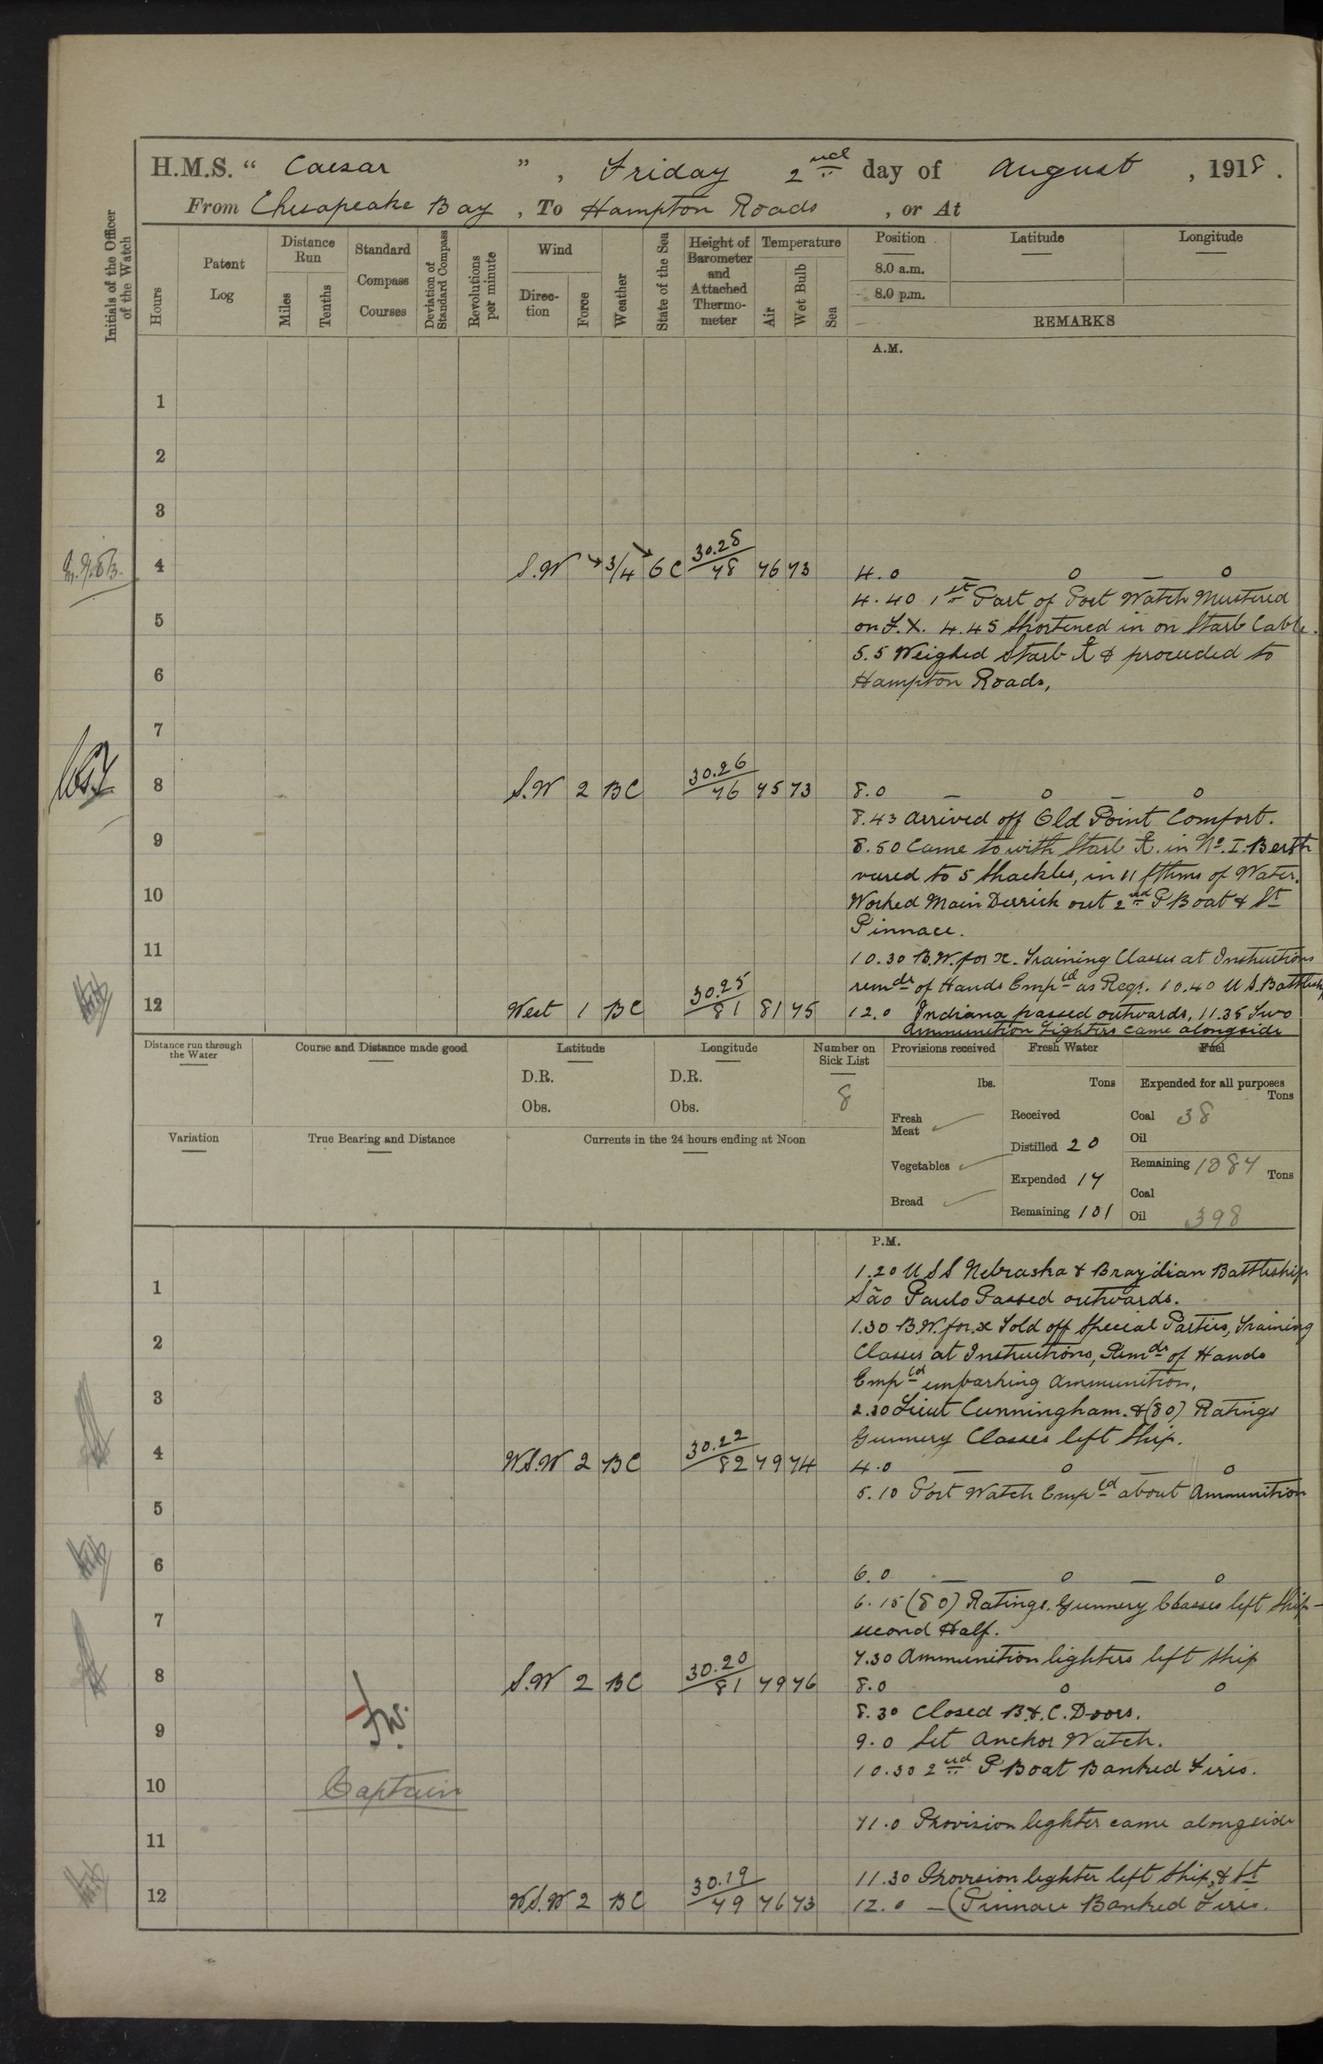 H.M.S. “ Caesar ” , Friday 2nd day of August , 1918 .
From Chesapeake Bay , To Hampton Roads , or At
Initials of the Officer of the Watch
Hours
Patent Log
Distance Run
Miles
Tenths
Standard Compass Courses
Deviation of Standard Compass
Revolutions per minute
Wind
Direc-tion
Force
Weather
State of the Sea
Height of Barometer and Attached Thermo-meter
Temperature
Air
Wet Bulb
Sea
Position
Latitude
Longitude
8.0 a.m.
8.0 p.m.
REMARKS
A.M.
1
2
3
4 S.W 3/4 6 C 30.28/78 76 73 4.0 — 0 — 0
4.40 1st Part of Port Watch Mustered
5 on F.X. 4.45 Shortened in on Starb Cable.
5.5 Weighed Starb & proceeded to
6 Hampton Roads,
7
8 S.W 2 BC 30.26/76 75 73 8.0 — 0 — 0
8.43 Arrived off Old Point Comfort.
9 8.50 Came to with Starb in No. I. Berth
veered to 5 Shackles, in 11 fthms of Water.
10 Worked Main Derrick out 2nd P Boat & St
Pinnace.
11 10.30 B.W. for x. Training Classes at Instructions
remdr of Hands Empld as Reqr. 10.40 U S. Battleship
12 West 1 BC 30.25/81 81 75 12.0 Indiana passed outwards, 11.35 Two
Ammunition Lighters came alongside
Distance run through the Water
Course and Distance made good
Latitude
D.R.
Obs.
Longitude
D.R.
Obs.
Number on Sick List
8
Provisions received
lbs.
Fresh Meat
Vegetables
Bread
Fresh Water
Tons
Received
Distilled 20
Expended 17
Remaining 101
Fuel
Expended for all purposes
Tons
Coal 38
Oil
Remaining 1087 Tons
Coal
Oil 398
Variation
True Bearing and Distance
Currents in the 24 hours ending at Noon
P.M.
1.20 U S S Nebraska & Brazilian Battleship
1 São Paulo Passed outwards.
1.30 B.W. for x Told off Special Parties, Training
2 Classes at Instructions, Remdr of Hands
Empld embarking Ammunition,
3 2.30 Lieut Cunningham. & (80) Ratings
Gunnery Classes left Ship.
4 W.S.W 2 BC 30.22/82 79 74 4.0 — 0 — 0
5.10 Port Watch Empld about Ammunition
5
6 6.0 — 0 — 0
6.15 (80) Ratings. Gunnery Classes left Ship –
7 second Half.
7.30 Ammunition lighters left Ship
8 S.W 2 BC 30.20/81 79 76 8.0 0 0
8.30 Closed B.&.C. Doors.
9 9.0 Set Anchor Watch.
10.30 2nd P Boat Banked Fires.
10 Captain
11.0 Provision lighter came alongside
11
11.30 Provision lighter left Ship, & St
12 W.S.W 2 BC 30.19/79 76 73 12.0 — (Pinnace Banked Fires.